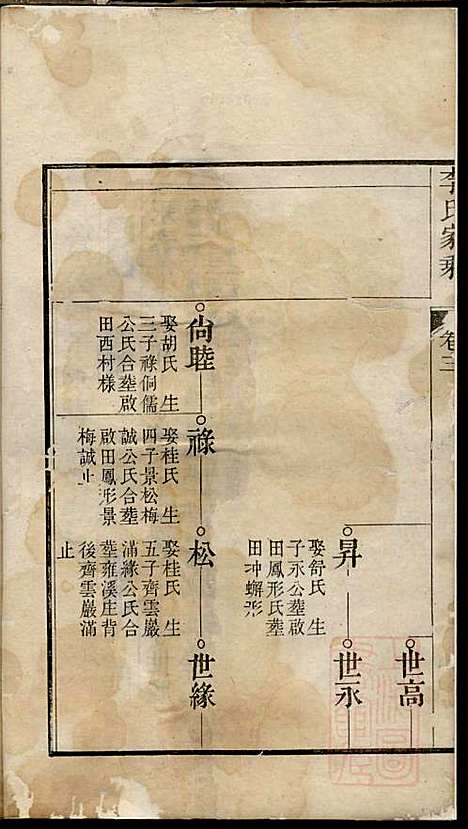 李氏家乘
卷三
世高
昇
娶舒氏 生
子永公塟啟
田鳳形氏塟
田冲蠏形
世永
尙睦
娶胡氏 生
三子祿侗儒
公氏合塟啟
田西村樣
祿
娶桂氏 生
四子景松梅
誠公氏合塟
啟田鳳形景
梅誠止
松
娶桂氏 生
五子齊雲巖
滿緣公氏合
塟雍溪庄背
後齊雲巖滿
止
世緣